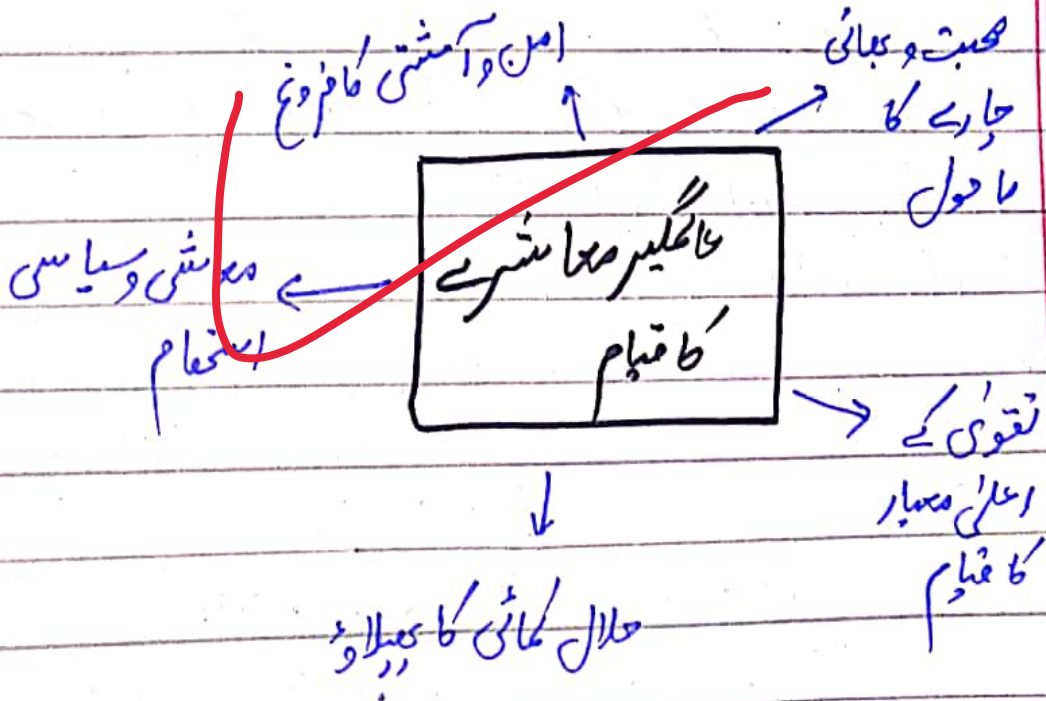 محبت و بھائی
چارے کا
ماحول
امن و آشتی کا فروغ
عالمگیر معاشرے
کا قیام
معاشی و سیاسی
استحکام
تقویٰ کے
اعلیٰ معیار
کا قیام
حلال کمائی کا پھیلاؤ